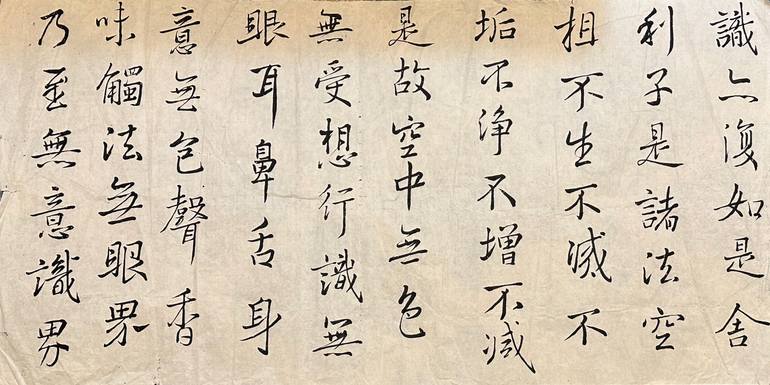 識亦復如是舍
利子是諸法空
相不生不滅不
垢不淨不增不減
是故空中無色
無受想行識無
眼耳鼻舌身
意無色聲香
味觸法無眼界
乃至無意識界